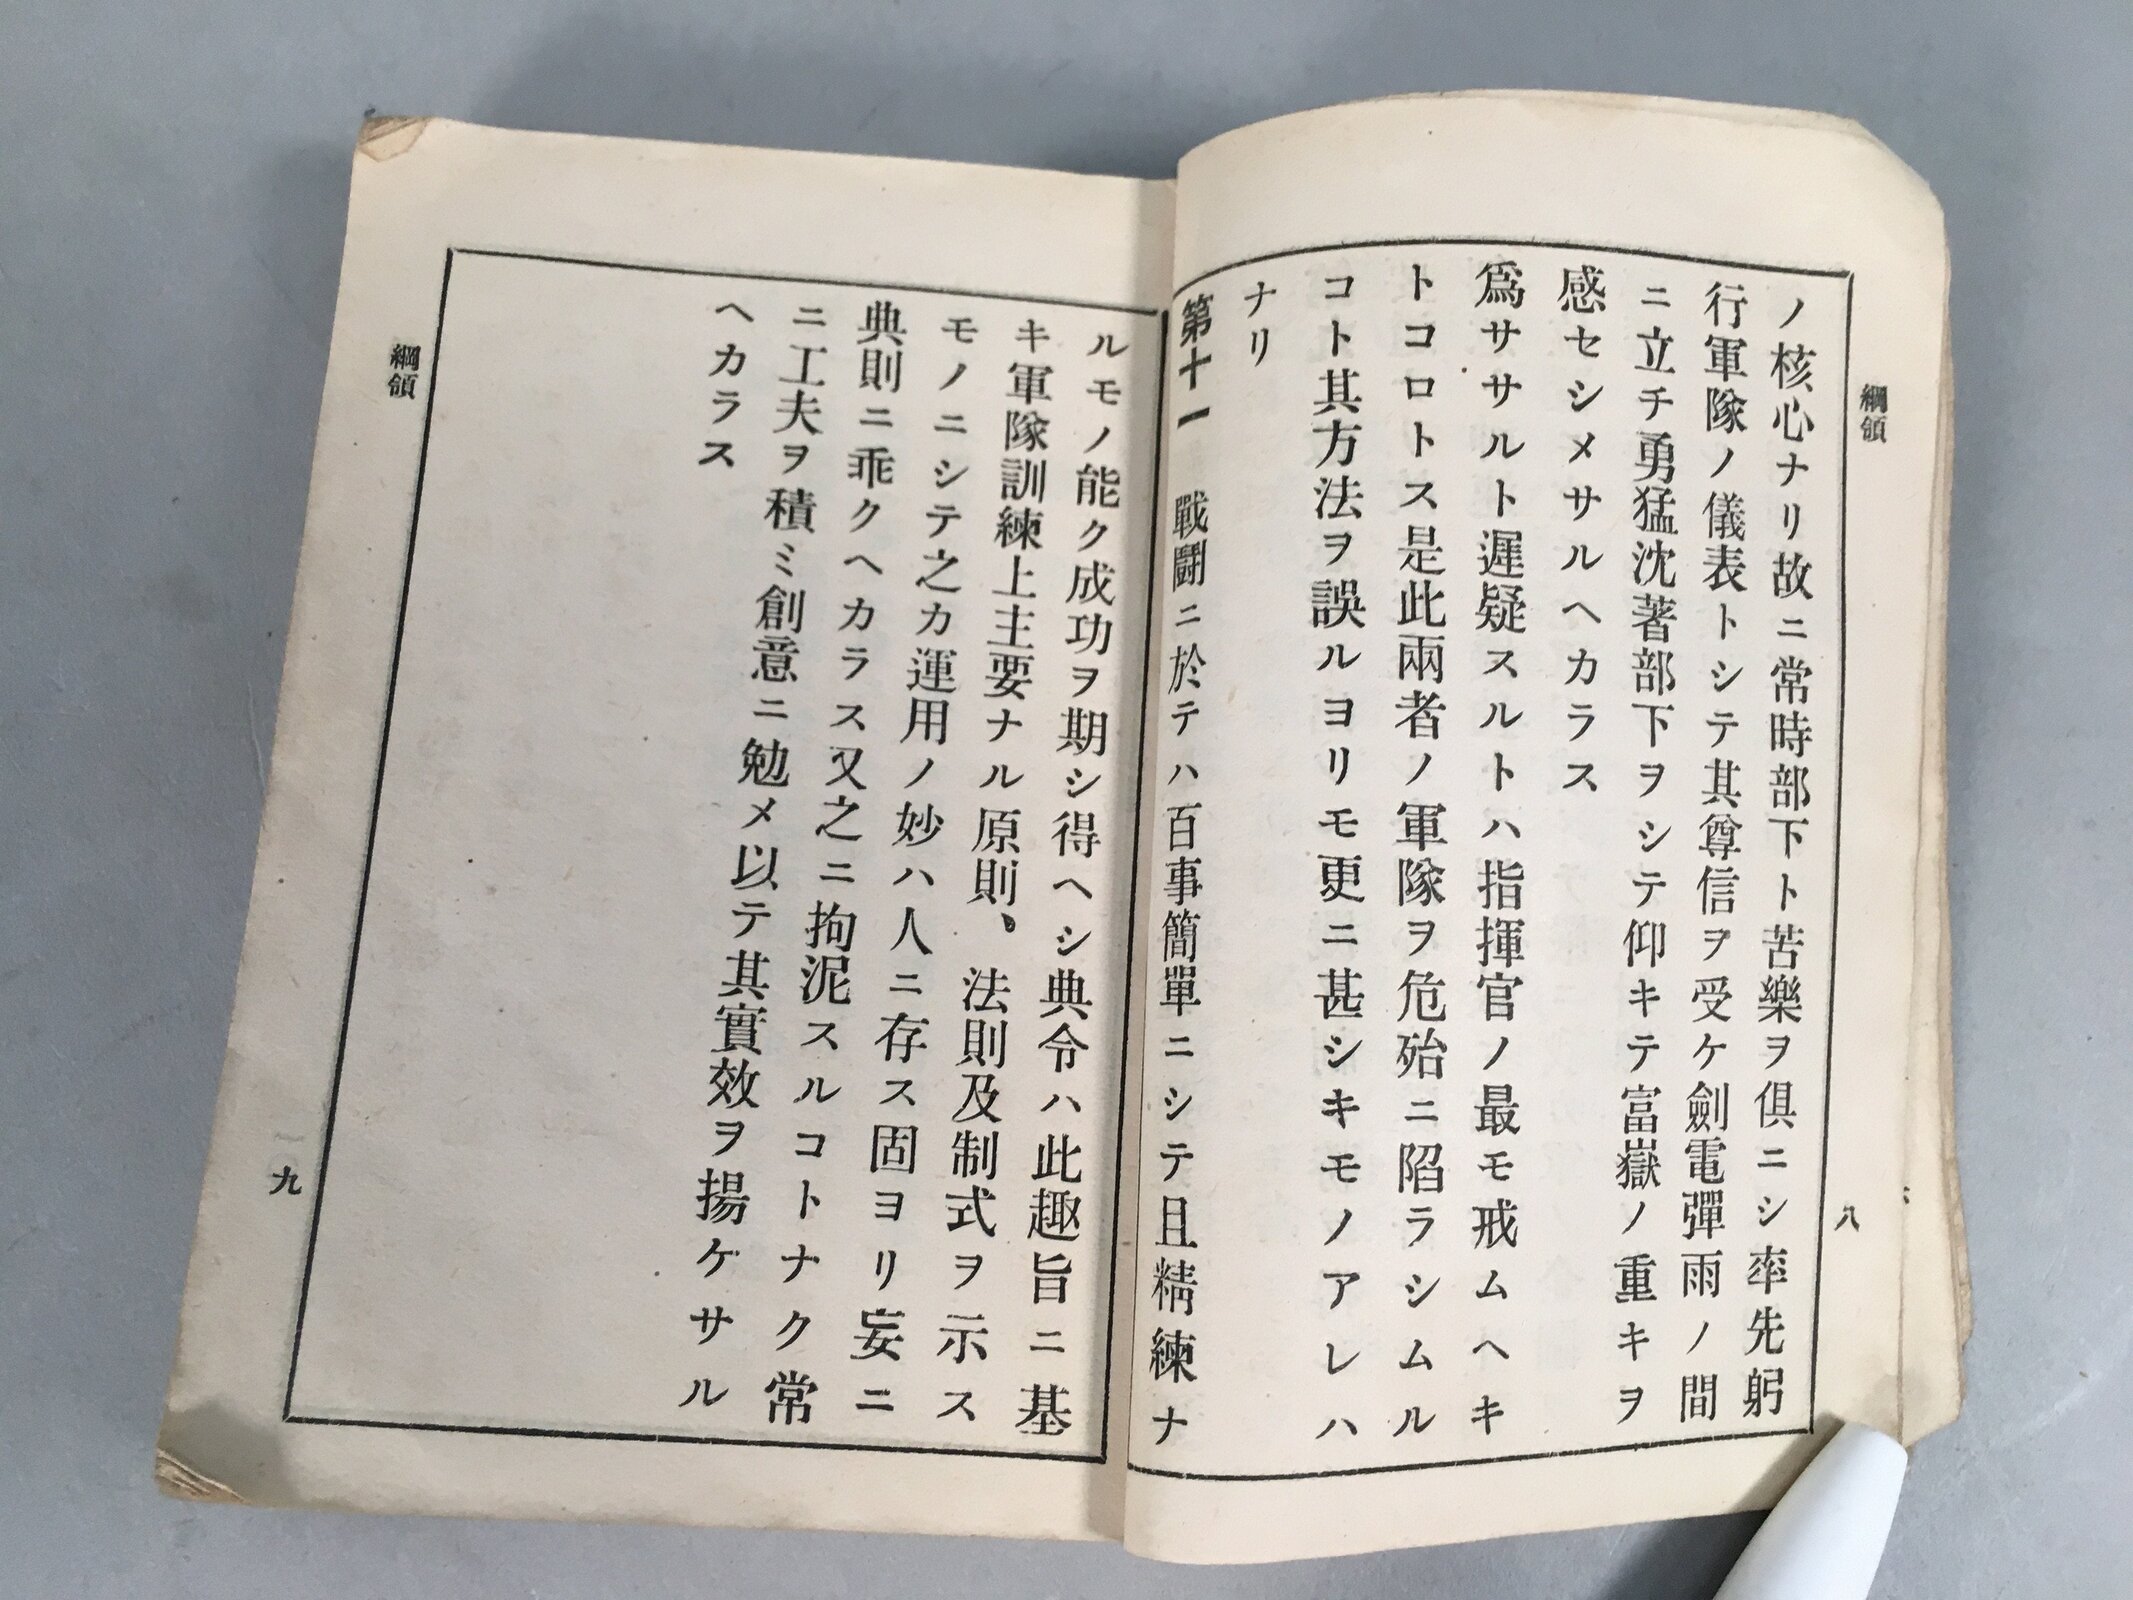 綱領
八
ノ核心ナリ故ニ常時部下ト苦樂ヲ俱ニシ率先躬
行軍隊ノ儀表トシテ其尊信ヲ受ケ劍電彈雨ノ間
ニ立チ勇猛沈著部下ヲシテ仰キテ富嶽ノ重キヲ
感セシメサルヘカラス
爲ササルト遲疑スルトハ指揮官ノ最モ戒ムヘキ
トコロトス是此兩者ノ軍隊ヲ危殆ニ陷ラシムル
コト其方法ヲ誤ルヨリモ更ニ甚シキモノアレハ
ナリ
第十一 戰鬪ニ於テハ百事簡單ニシテ且精練ナ
ルモノ能ク成功ヲ期シ得ヘシ典令ハ此趣旨ニ基
キ軍隊訓練上主要ナル原則、法則及制式ヲ示ス
モノニシテ之カ運用ノ妙ハ人ニ存ス固ヨリ妄ニ
典則ニ乖クヘカラス又之ニ拘泥スルコトナク常
ニ工夫ヲ積ミ創意ニ勉メ以テ其實效ヲ揚ケサル
ヘカラス
綱領
九